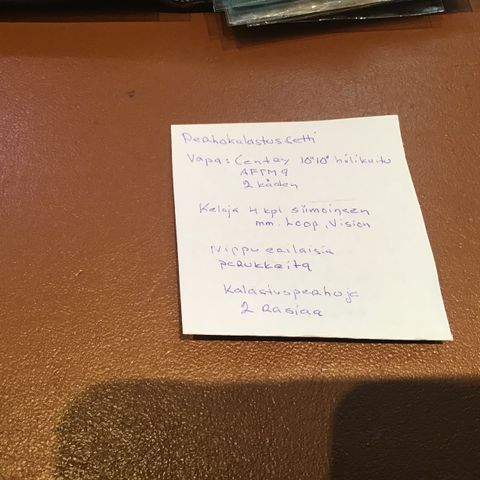 Perhokalastussetti
Vapa: Centay 10'10" hiilikuitu
AFTM 9
2 käden
Keloja 4 kpl siimoineen
mm. Loop, Vision
Nippu erilaisia
perukkeita
Kalastusperhoja
2 rasiaa